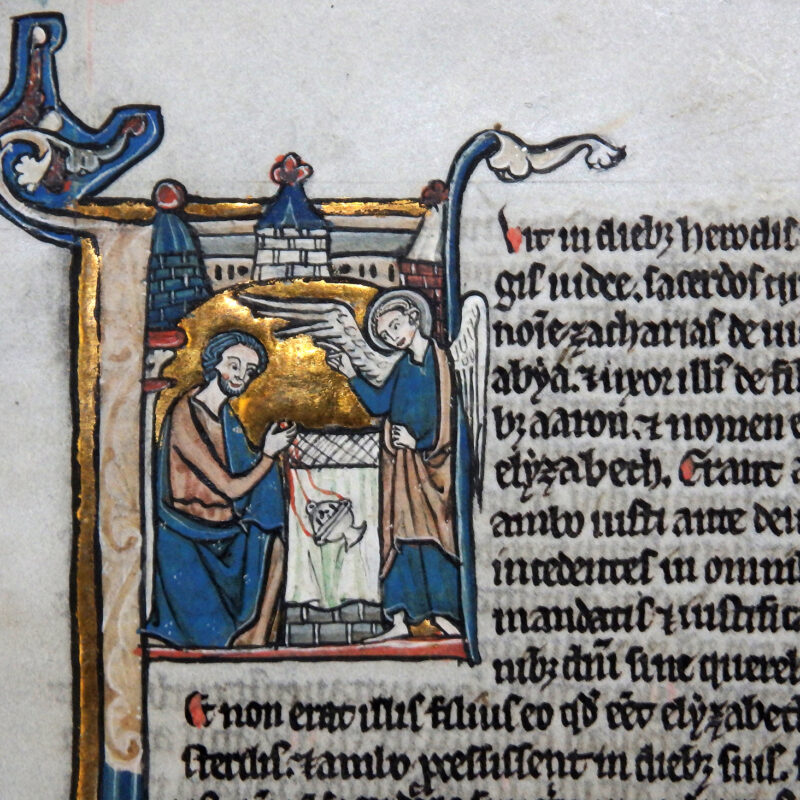 uit in diebꝫ herodis
gis iudee. sacerdos qu
noīe zacharias de ui
abya. ⁊ uxor illi de fil
bꝫ aaron. ⁊ nomen e
elyzabeth. Erant a
ambo iusti ante deu
incedentes in omni
mandatis ⁊ iustifica
nibꝫ dn̄i sine querel
Et non erat illis filius eo qđ eēt elyzabeth
sterilis. ⁊ ambo ꝓcessissent in diebꝫ suis.